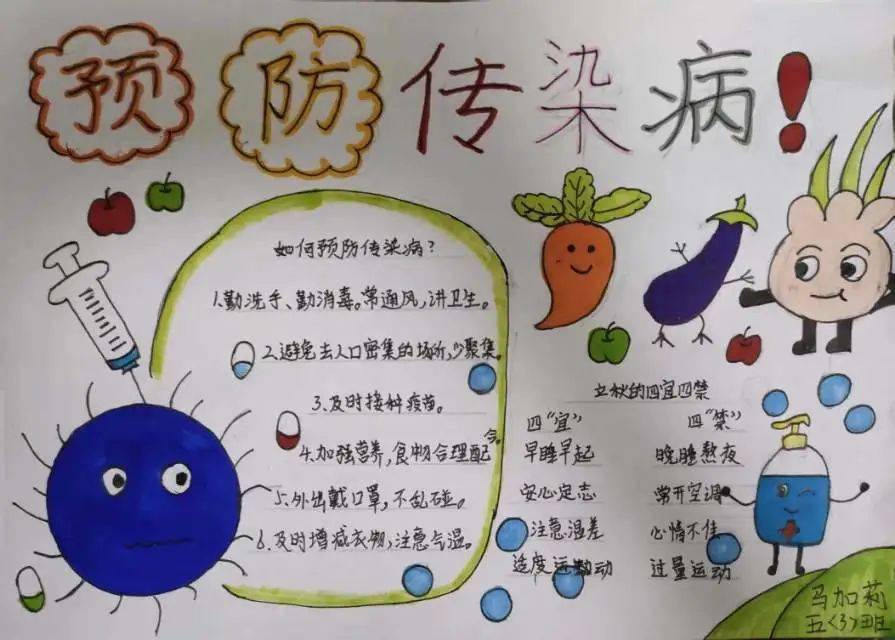 预防传染病!
如何预防传染病?
1.勤洗手、勤消毒。常通风,讲卫生。
2.避免去人口密集的场所,少聚集。
3.及时接种疫苗。
4.加强营养,食物合理配合。
5.外出戴口罩,不乱碰。
6.及时增减衣物,注意气温。
立秋的四宜四禁
四“宜” 四“禁”
早睡早起 晚睡熬夜
安心定志 常开空调
注意温差 心情不佳
适度运动 过量运动
马加莉
五<3>班